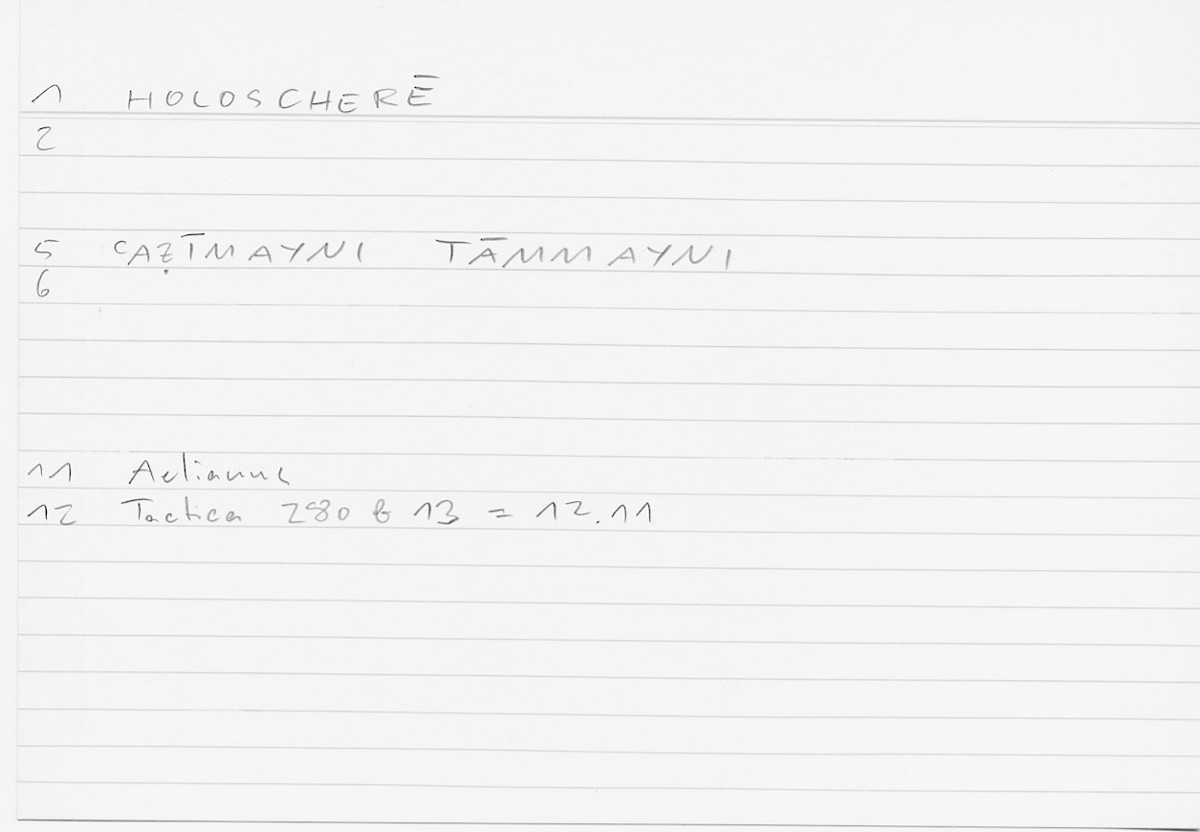 1 HOLOSCHERĒ
2
5 ʿAẒĪMAYNI TĀMMAYNI
6
11 Aelianus
12 Tactica 280 b 13 = 12.11